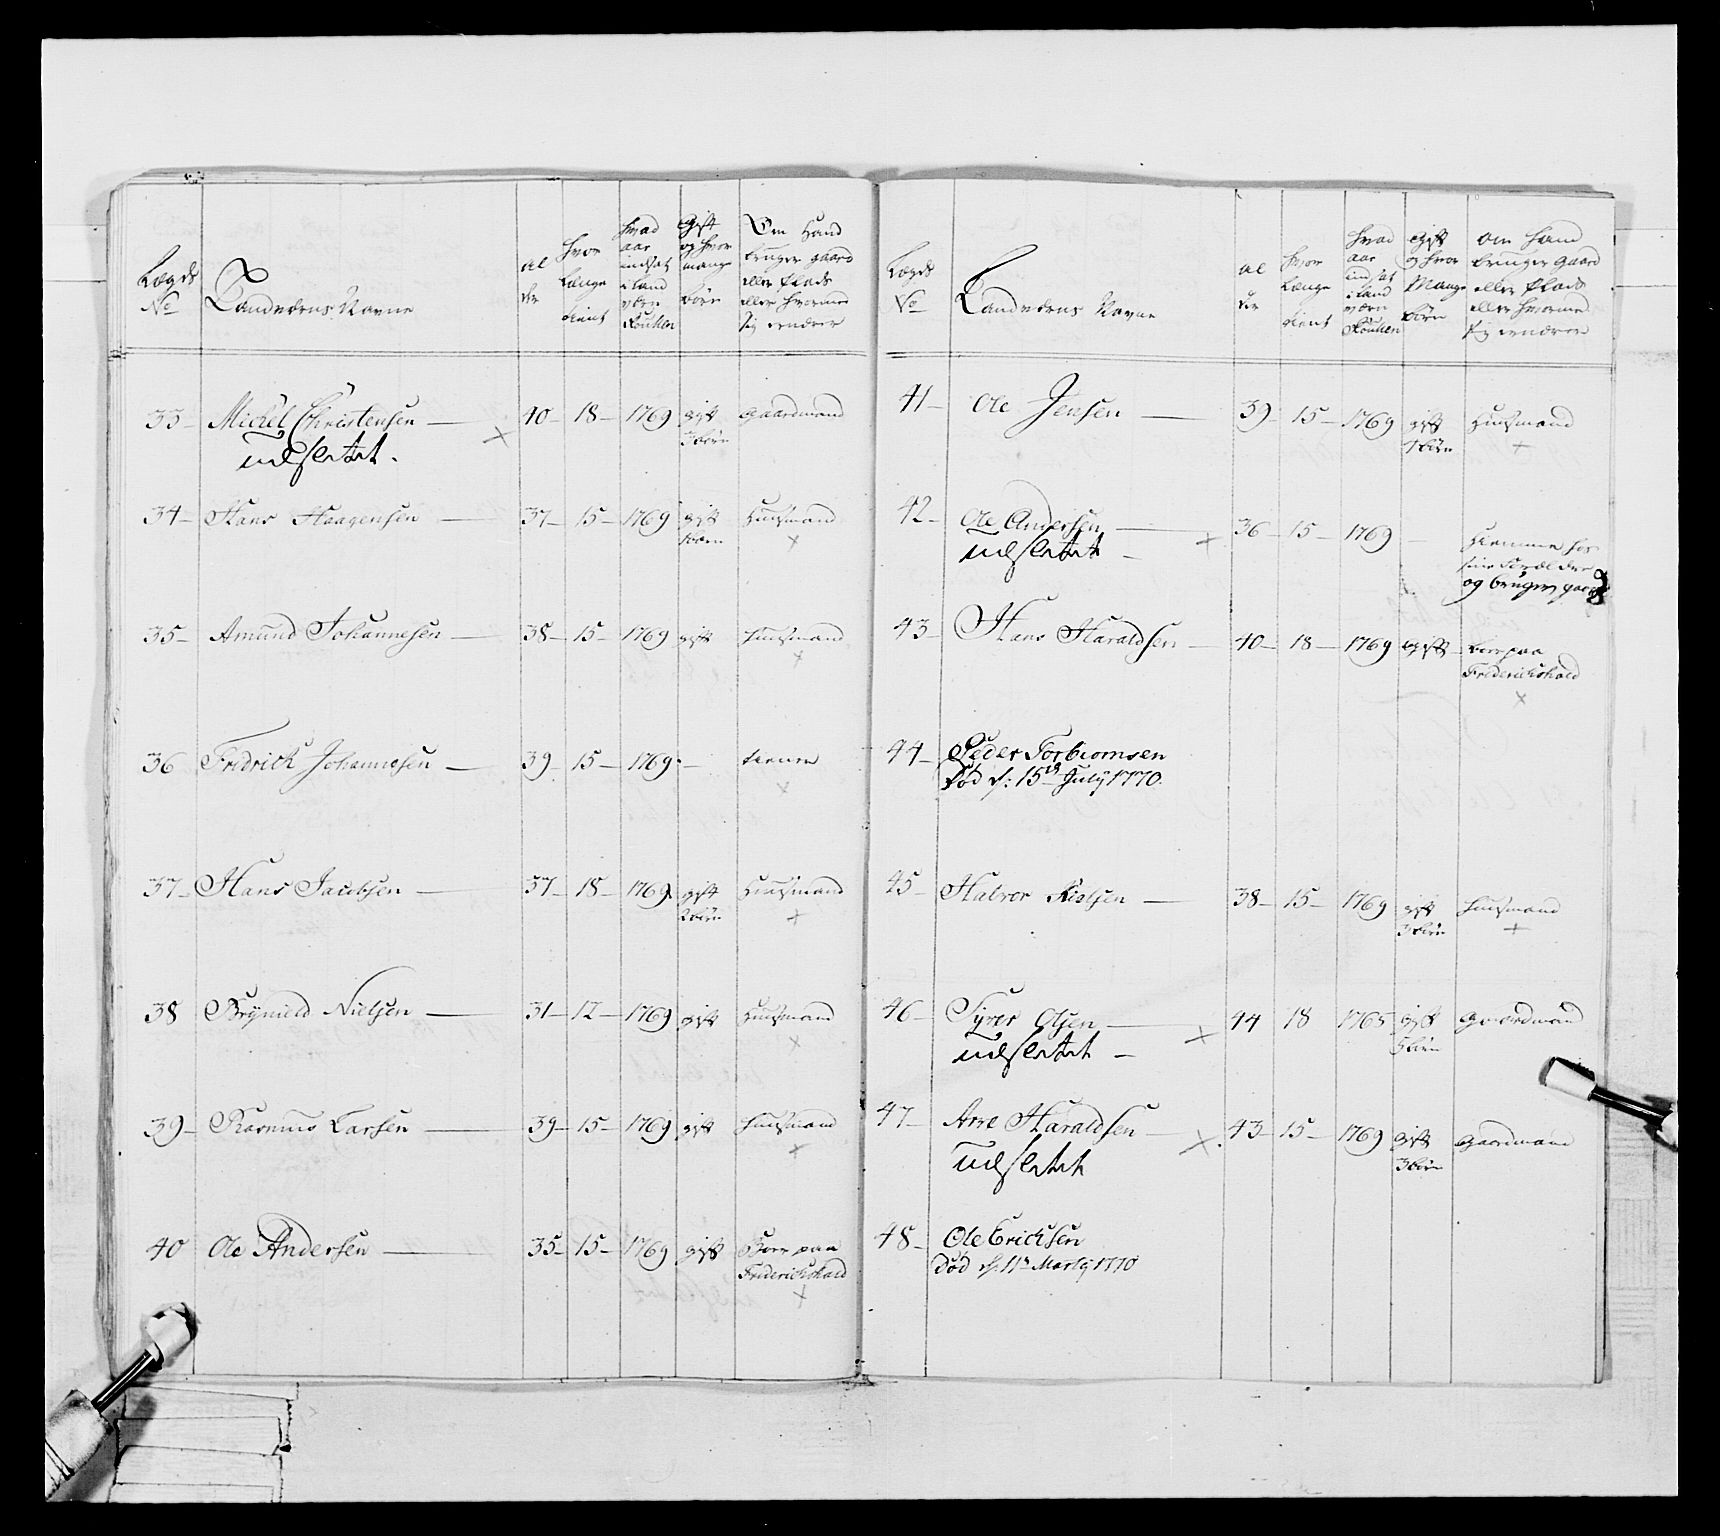 Lægds No
Landværns Navne
al der
hvor længe tient
hvad aar indsat i Land værn Roullen
gift og hvor mange börn
Om Hand bruger gaard eller Plads eller hvormed sig ernærer
33 Michel Christensen 40 18 1769 gift 3 börn gaardmand
udslettet.
34 Hans Haagensen 37 15 1769 gift 1 barn Huusmand
35 Amund Johannesen 38 15 1769 gift Huusmand
36 Fredrich Johannesen 39 15 1769 tiener
37 Hans Jacobsen 37 18 1769 gift 2 börn Huusmand
38 Brynild Nielsen 31 12 1769 gift Huusmand
39 Rasmus Larsen 39 15 1769 gift Huusmand
40 Ole Andersen 35 15 1769 gift Boer paa Friderichshald
Lægds No
Landværns Navne
al der
hvor længe tient
hvad aar indsat i Land værn Roullen
gift og hvor Mange börn
om hand bruger gaard eller Plads eller hvormed sig ernærer
41 Ole Jensen 39 15 1769 gift 1 börn Huusmand
42 Ole Andersen 36 15 1769 hiemme hos sine Forældre og bruger gaard
udslettet
43 Hans Haraldsen 40 18 1769 gift boer paa Friderichshald
44 Peder Torbiornsen
Död d: 15de July 1770.
45 Halvor Nielsen 38 15 1769 gift 3 börn Huusmand
46 Syver Olsen 44 18 1765 gift 5 börn gaardmand
udslettet
47 Arve Haraldsen 43 15 1769 gift 3 börn gaardmand
udslettet
48 Ole Erichsen
Död d: 11te Martij 1770